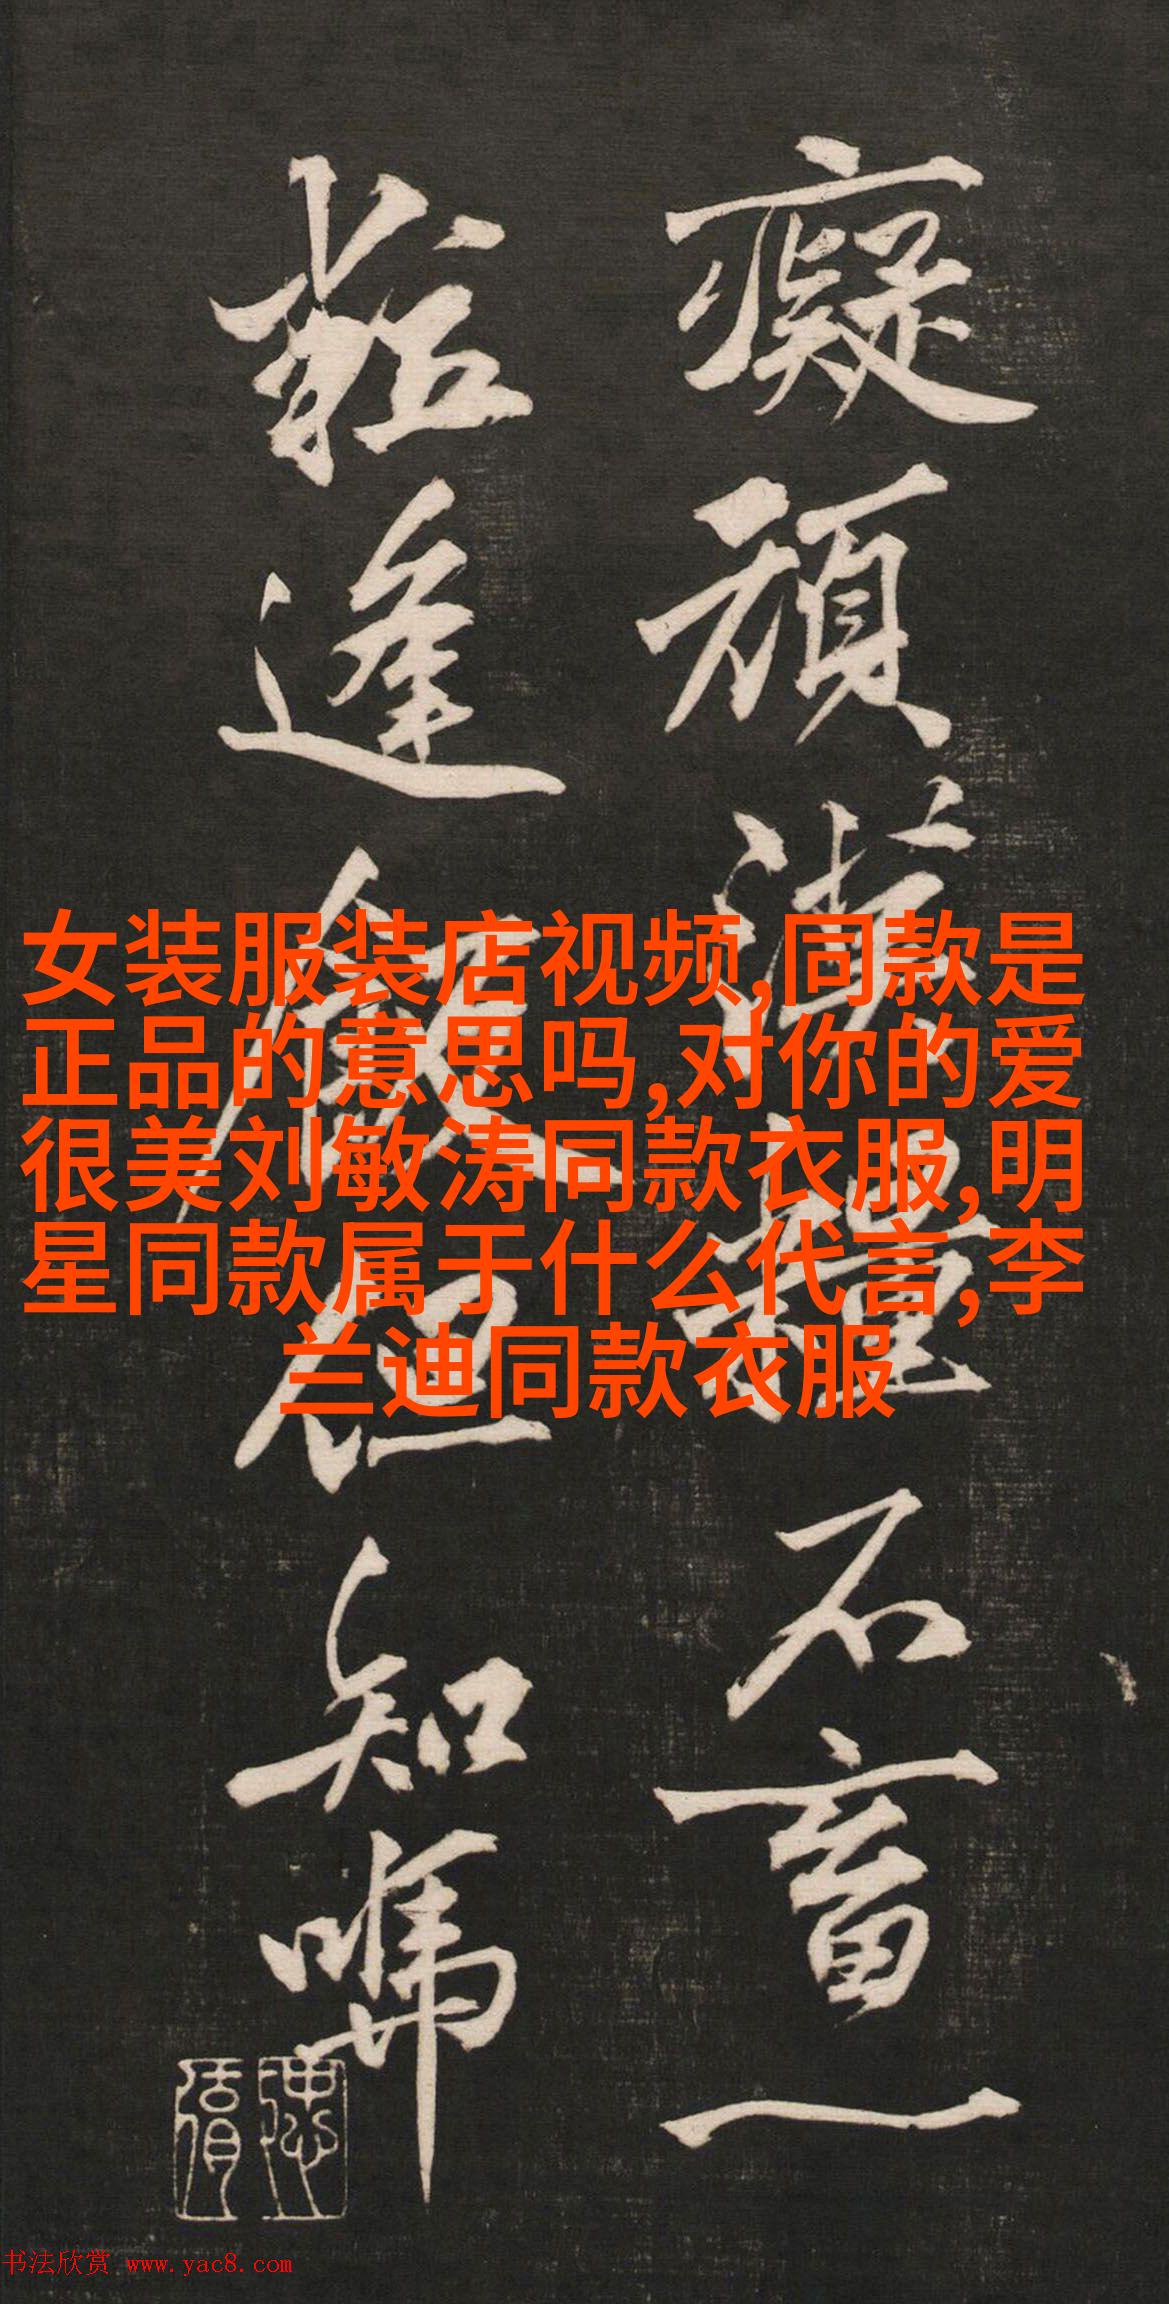 癡頑石畜一
逢飯但知
女装服装店视频,同款是
正品的意思吗,对你的爱
很美刘敏涛同款衣服,明
星同款属于什么代言,李
兰迪同款衣服
书法欣赏 www.yac8.com